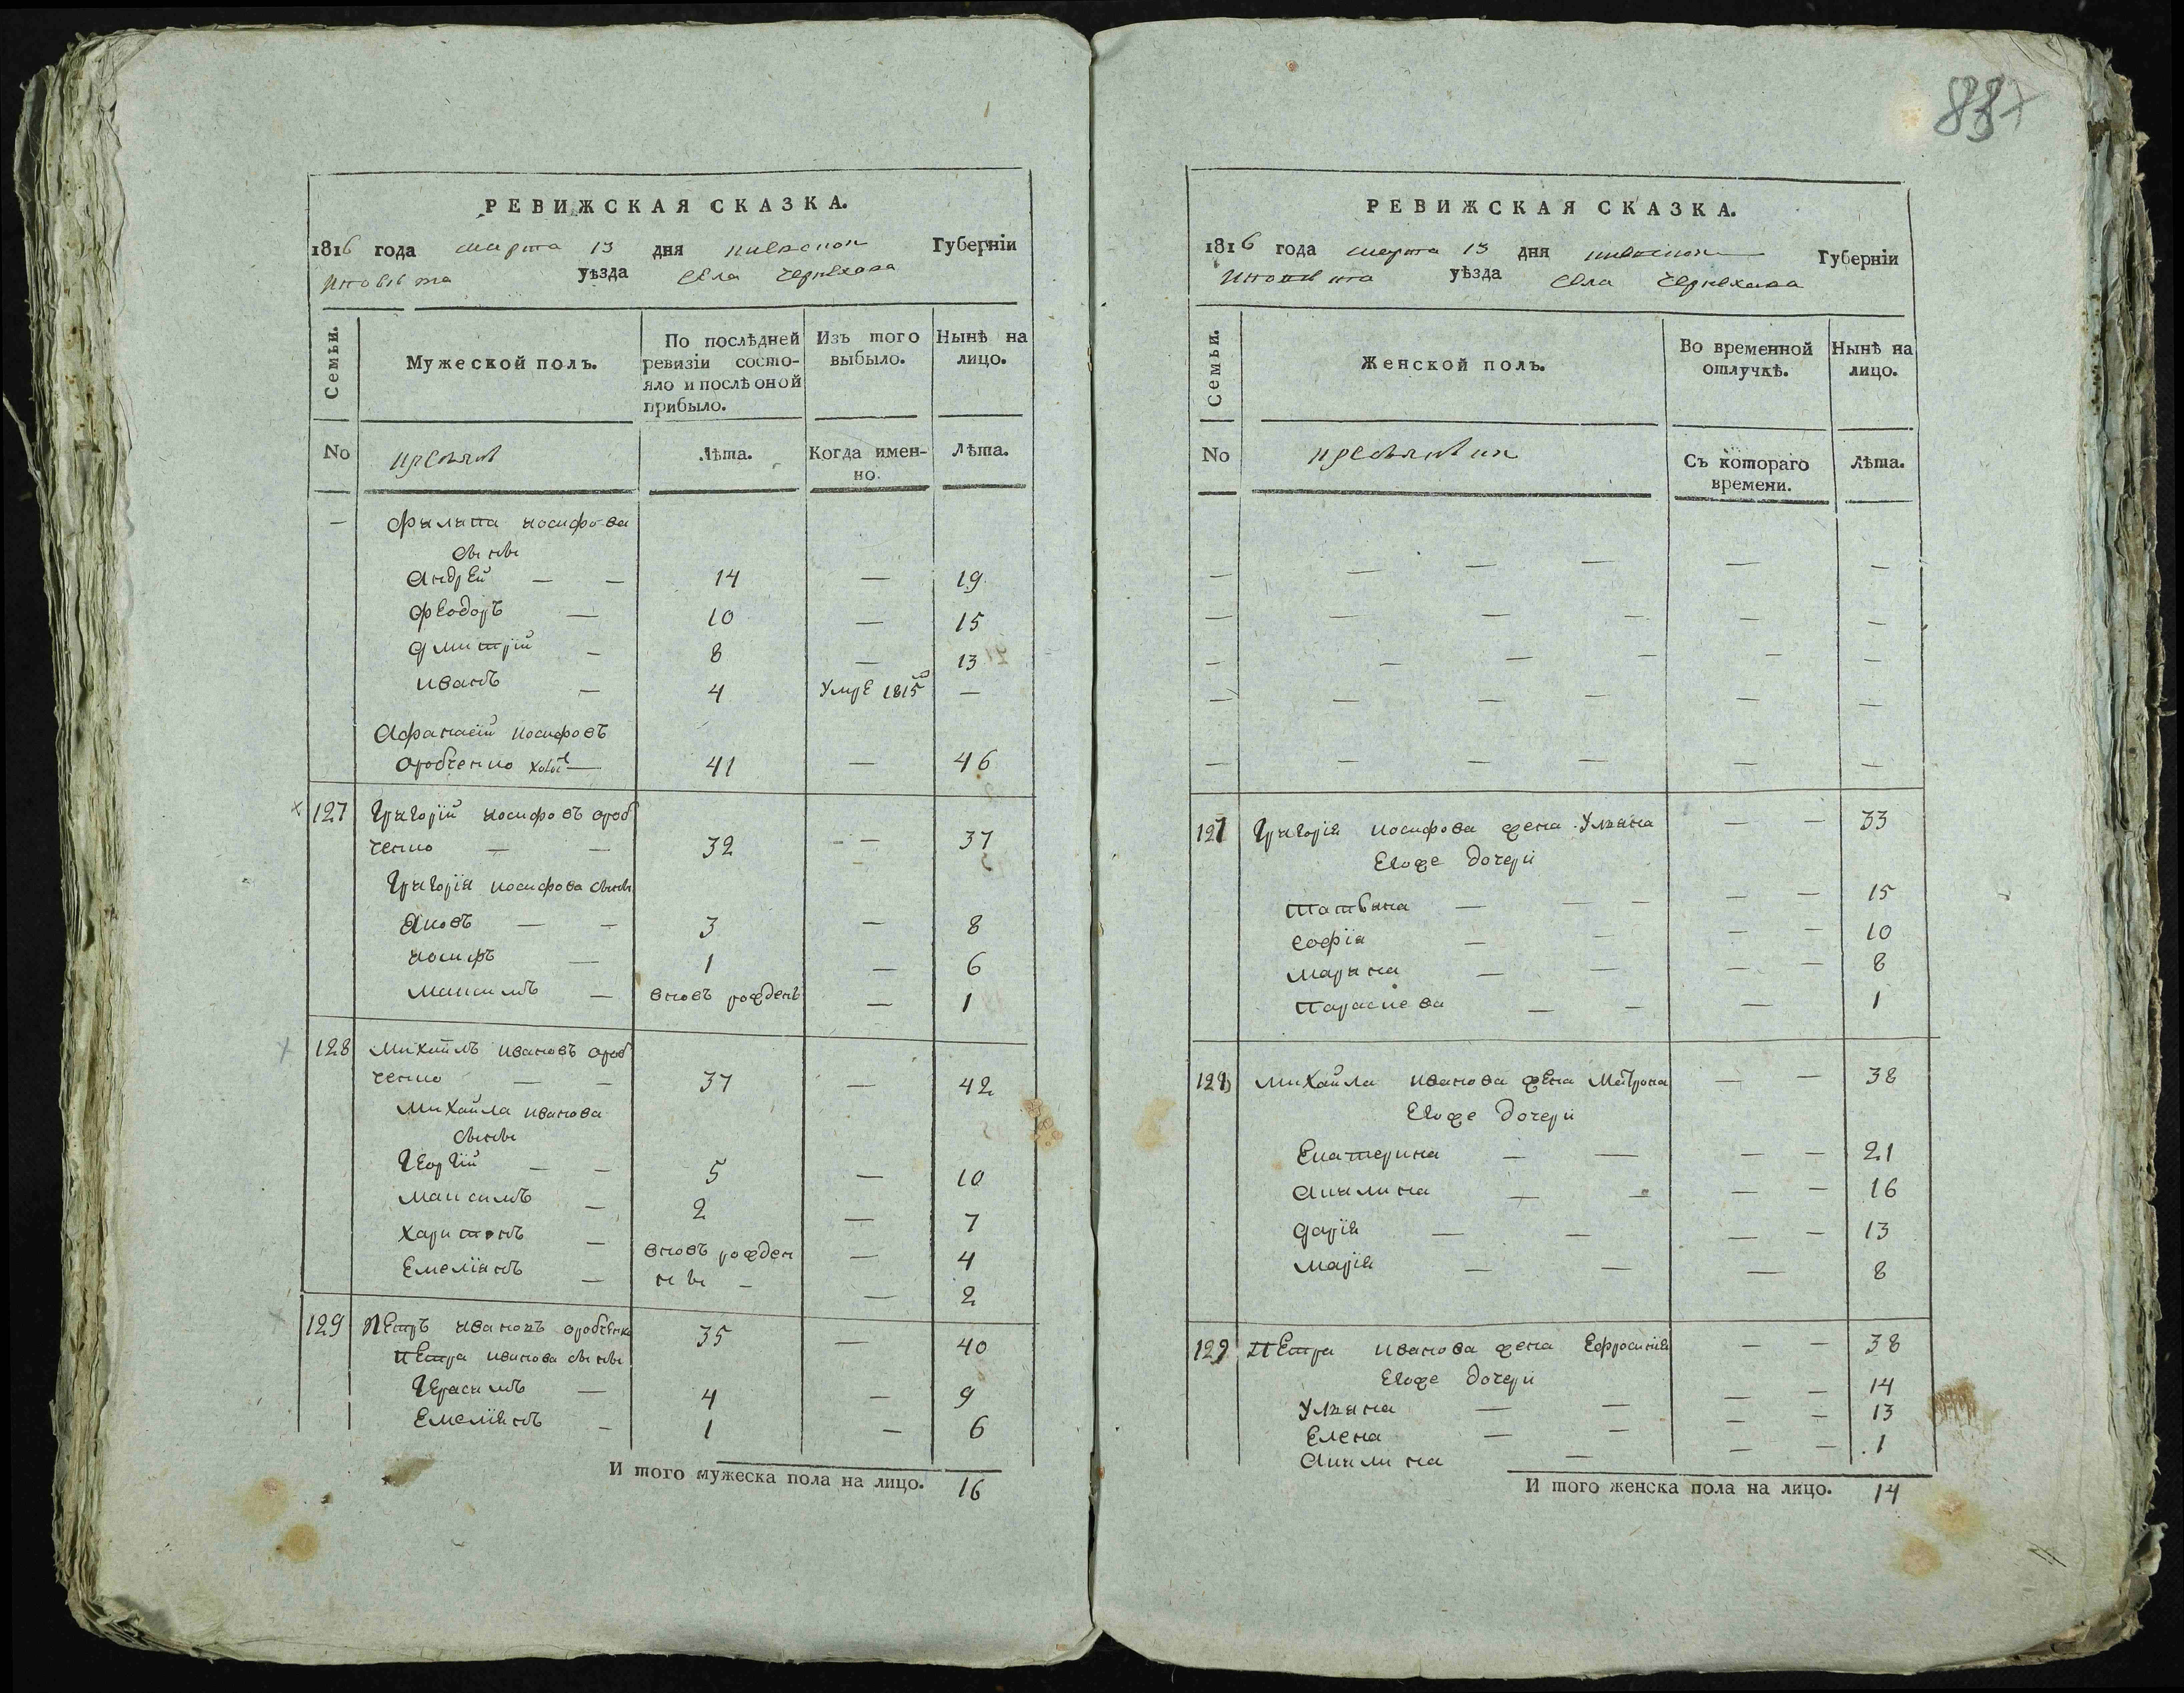 837
РЕВИЖСКАЯ СКАЗКА.
1816 года марта 13 дня киевской Губерніи
уѣзда села Чернехова
Семьи.
Мужеской полъ.
По послѣдней ревизіи состо-
яло и послѣ оной
прибыло.
Изъ того
выбыло.
Нынѣ на
лицо.
No
Лѣта.
Когда имен-
но.
Лѣта.
— Филипа иосифова
сыны
Андрей — — 14 — 19
Феодоръ — 10 — 15
Дмитрій — 8 — 13
Иванъ — 4 Умре 1815 —
Афанасій иосифовъ
оробченко 41 — 46
127 Григорій иосифовъ ороб
ченко — — 32 — 37
Григорія иосифова сыны
Яковъ — — 3 — 8
иосифъ — 1 — 6
Максимъ — вновъ рожденъ — 1
128 Михаилъ ивановъ ороб
ченко — — 37 — 42
Михаила иванова
сыны
Георгій — — 5 — 10
Максимъ — 2 — 7
Харитонъ — вновъ рожден — 4
Емеліянъ — ны — — 2
129 Петръ ивановъ оробченко 35 — 40
Петра иванова сыны
Герасимъ — 4 — 9
Емеліянъ — 1 — 6
И того мужеска пола на лицо. 16
РЕВИЖСКАЯ СКАЗКА.
1816 года марта 13 дня киевской Губерніи
уѣзда села Чернехова
Семьи.
Женской полъ.
Во временной
отлучкѣ.
Нынѣ на
лицо.
No
Съ котораго
времени.
Лѣта.
— — — — — —
— — — — — —
— — — — — —
— — — — — —
— — — — — —
127 Григорія иосифова жена Ульяна — — 33
Егоже дочери
Татьяна — — — — — 15
Софія — — — — 10
Марина — — — — 8
Параскева — — — 1
128 Михаила иванова жена Матрона — — 38
Егоже дочери
Екатерина — — — — 21
Акилина — — — — 16
Дарія — — — — 13
Марія — — — 8
129 Петра иванова жена Ефросинія — — 38
Егоже дочери
Ульяна — — — — 14
Елена — — — — 13
Акилина — — — 1
И того женска пола на лицо. 14